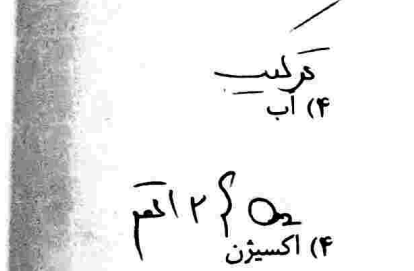 ترکیب
۴) آب
O2 { ۲ اتم
۴) اکسیژن